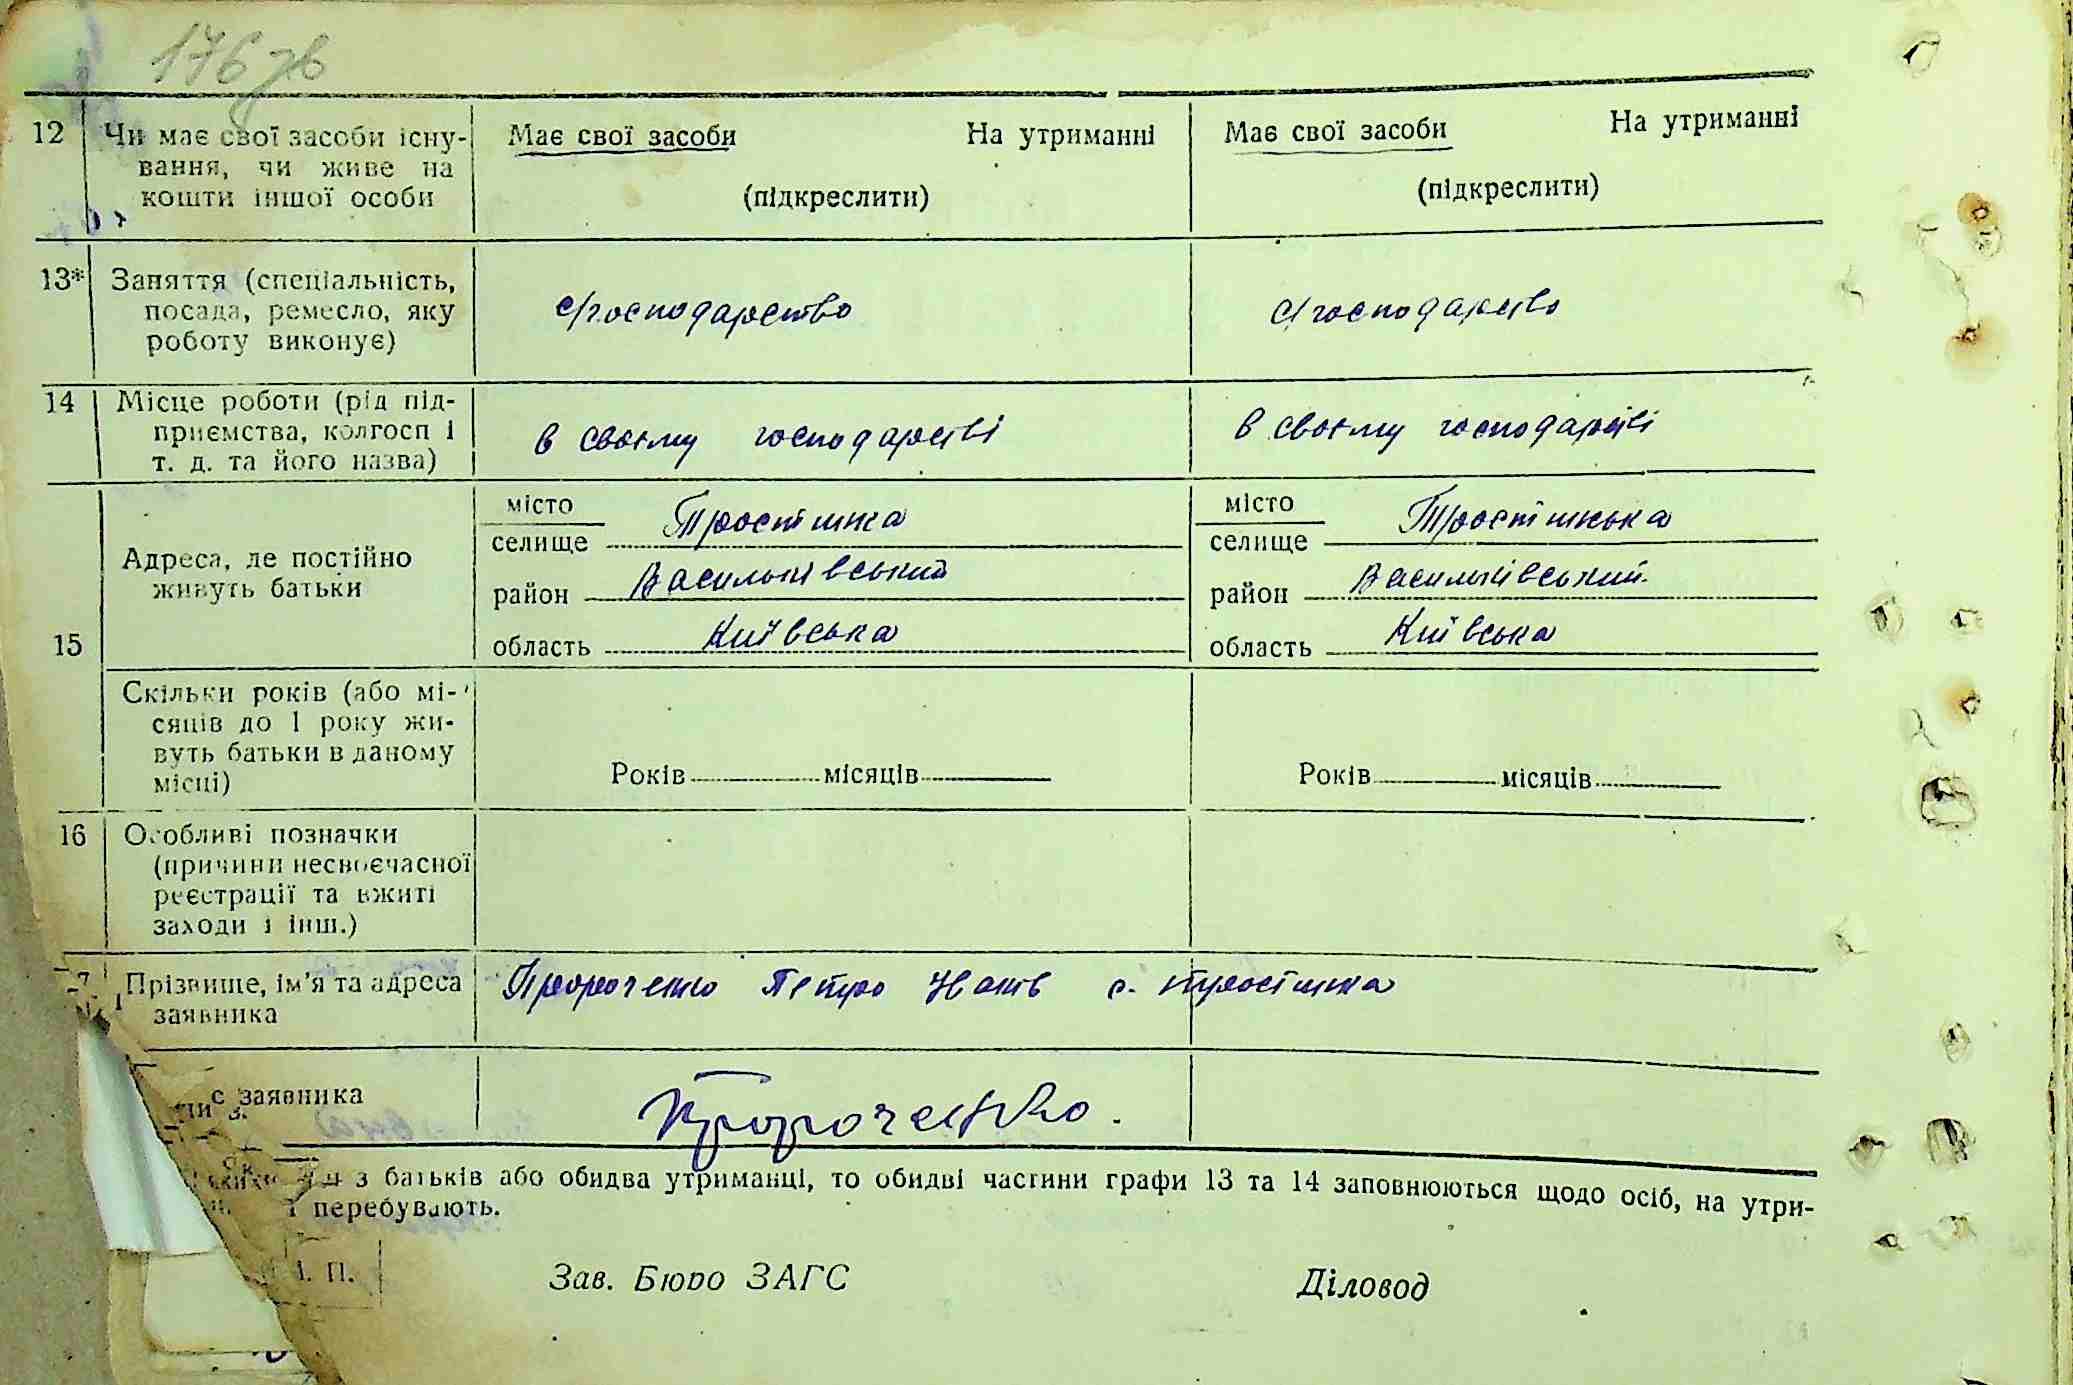 176 зв
12 Чи має свої засоби існу- Має свої засоби На утриманні Має свої засоби На утриманні
вання, чи живе на
кошти іншої особи (підкреслити) (підкреслити)
13* Заняття (спеціальність,
посада, ремесло, яку с/господарство с/господарство
роботу виконує)
14 Місце роботи (рід під-
приємства, колгосп і в своєму господарстві в своєму господарстві
т. д. та його назва)
місто Тростинка місто Тростинська
селище селище
Адреса, де постійно район Васильківський район Васильківський
живуть батьки
15 область Київська область Київська
Скільки років (або мі-
сяців до 1 року жи-
вуть батьки в даному Років місяців Років місяців
місці)
16 Особливі позначки
(причини несвоєчасної
реєстрації та вжиті
заходи і інш.)
Прізвище, ім'я та адреса Пророченко Петро Іванів с. тростинка
заявника
с заявника Пророченко.
з батьків або обидва утриманці, то обидві частини графи 13 та 14 заповнюються щодо осіб, на утри-
перебувають.
П. Зав. Бюро ЗАГС Діловод